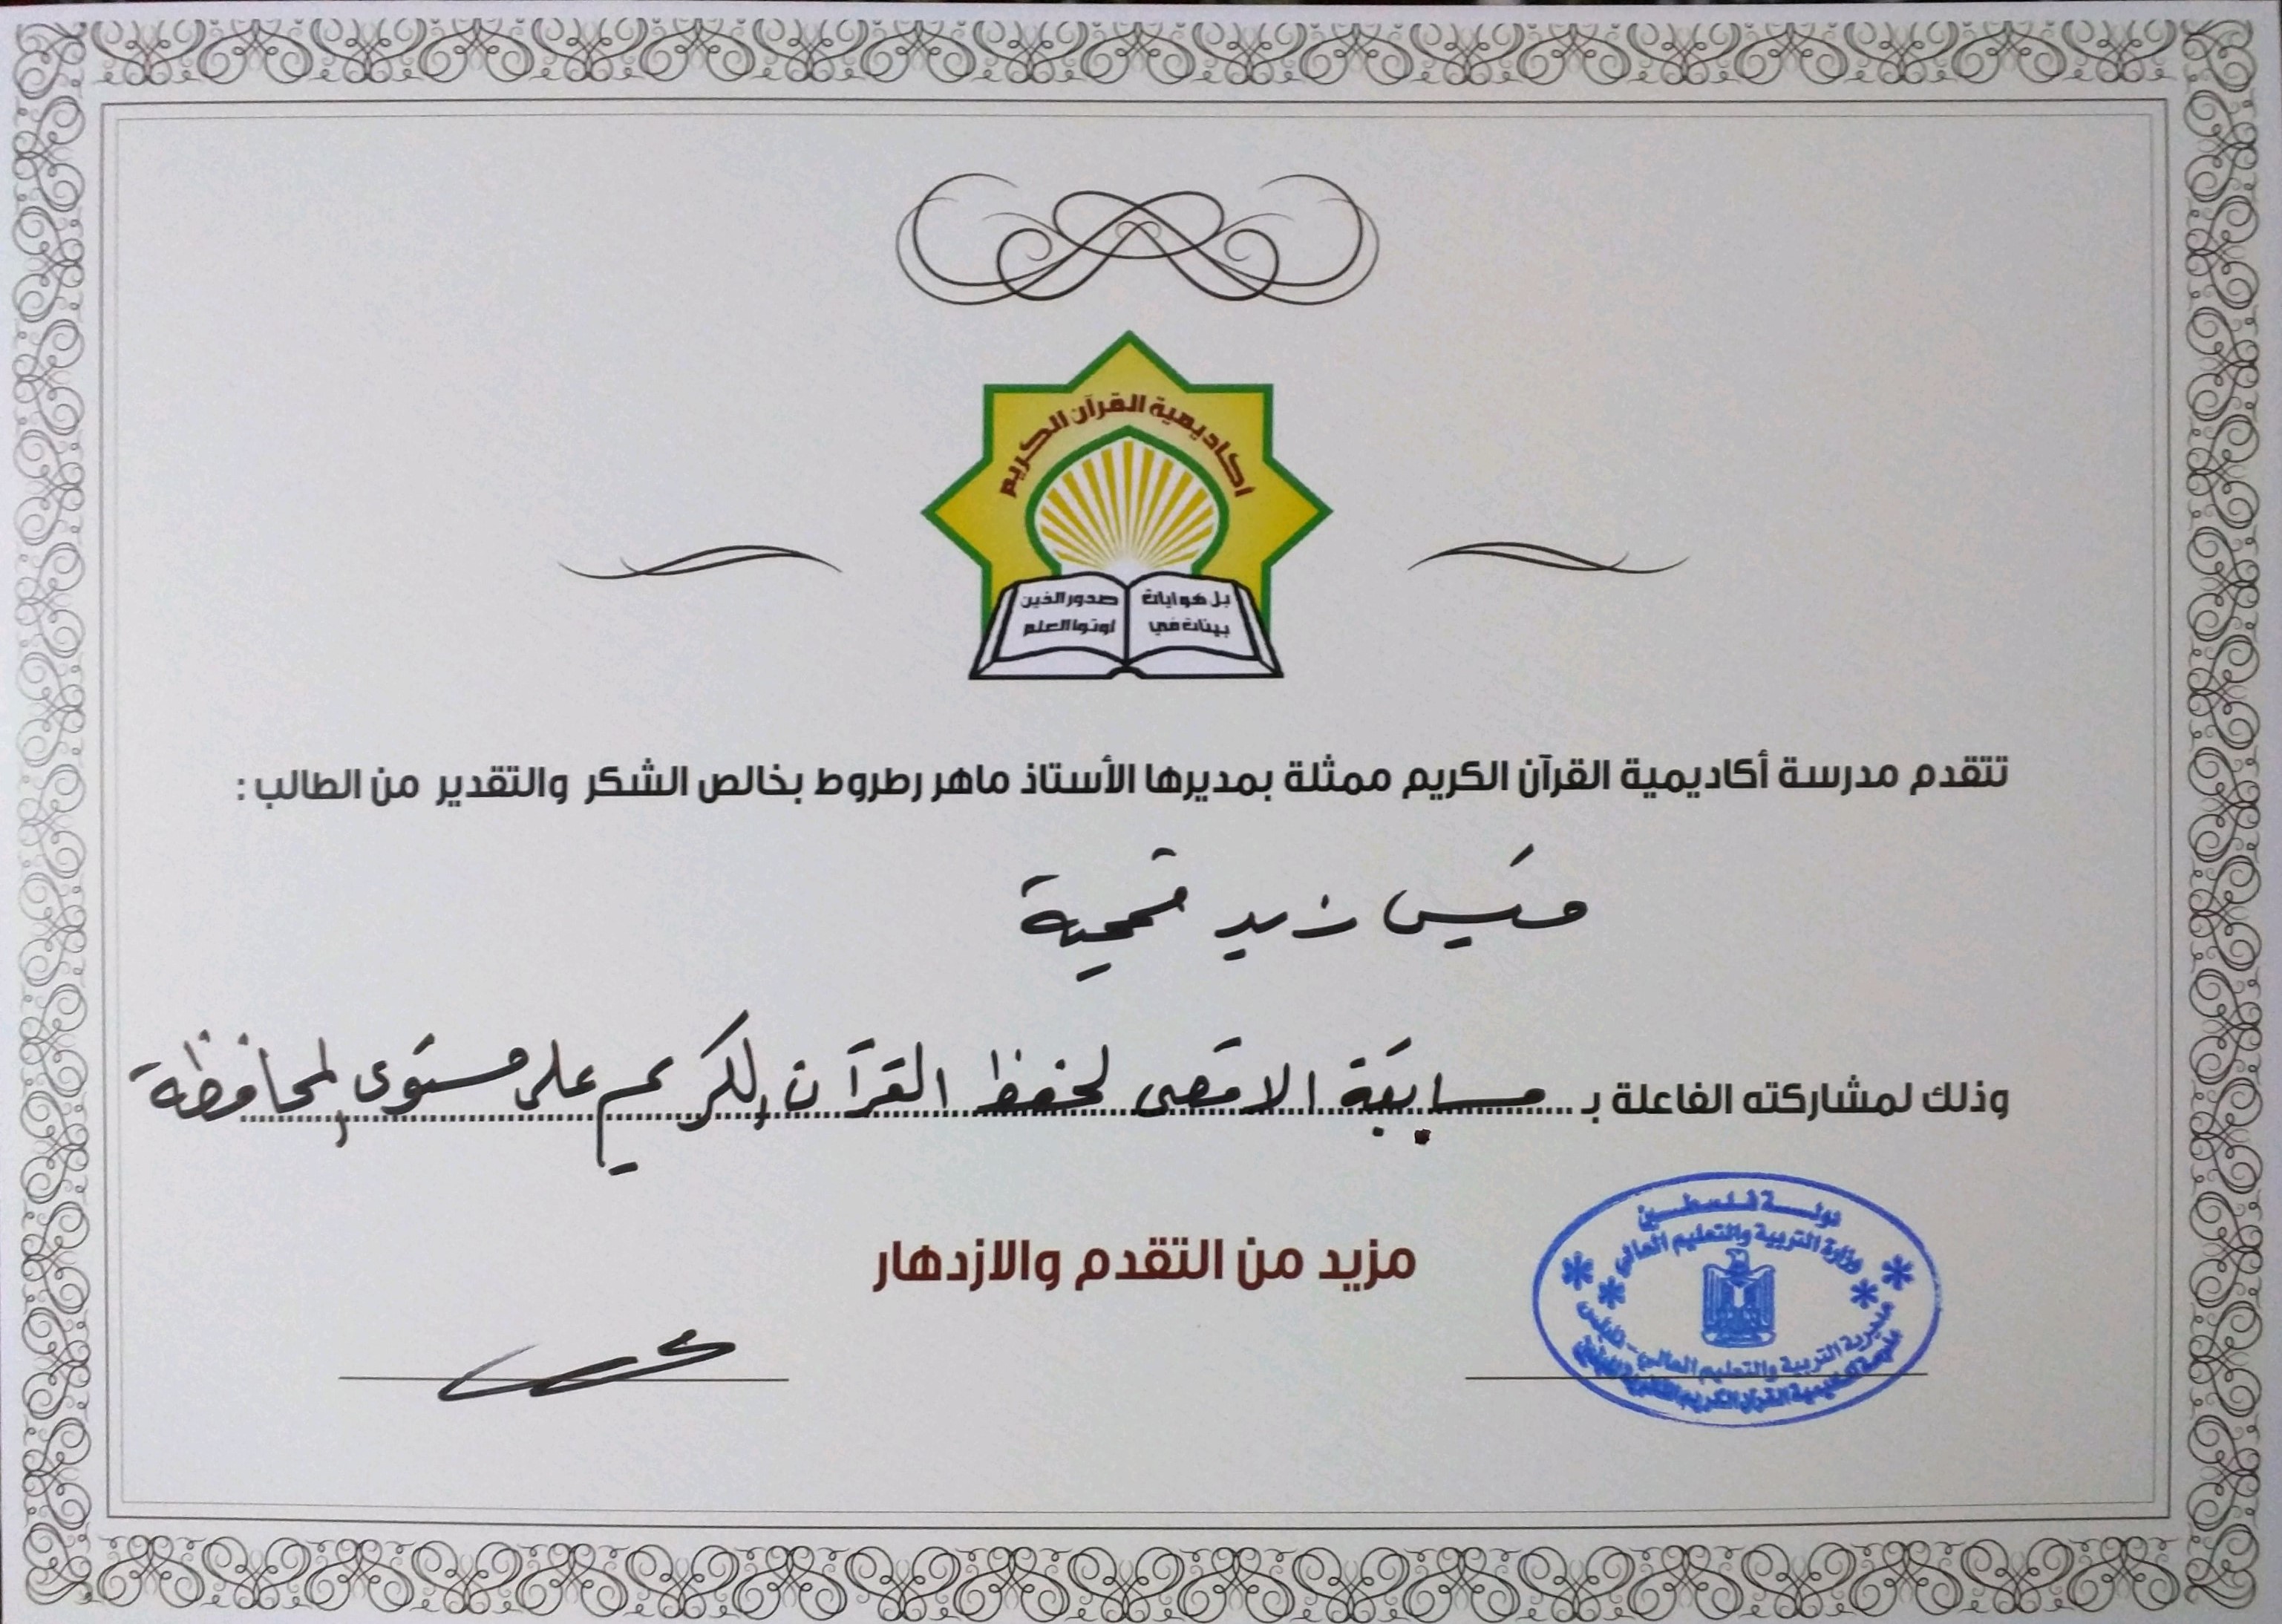 أكاديمية القرآن الكريم
بل هو ايات
بينات في
صدور الذين
اوتوا العلم
تتقدم مدرسة أكاديمية القرآن الكريم ممثلة بمديرها الأستاذ ماهر رطروط بخالص الشكر والتقدير من الطالب :
قيس زيد قمحية
وذلك لمشاركته الفاعلة بـ مسابقة الاقصى لحفظ القرآن الكريم على مستوى المحافظة
مزيد من التقدم والازدهار
دولة فلسطين
وزارة التربية والتعليم العالي
مديرية التربية والتعليم العالي - نابلس
أكاديمية القرآن الكريم